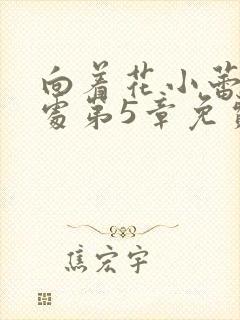 向着花小蕾
处第5章免费
焦宏宇